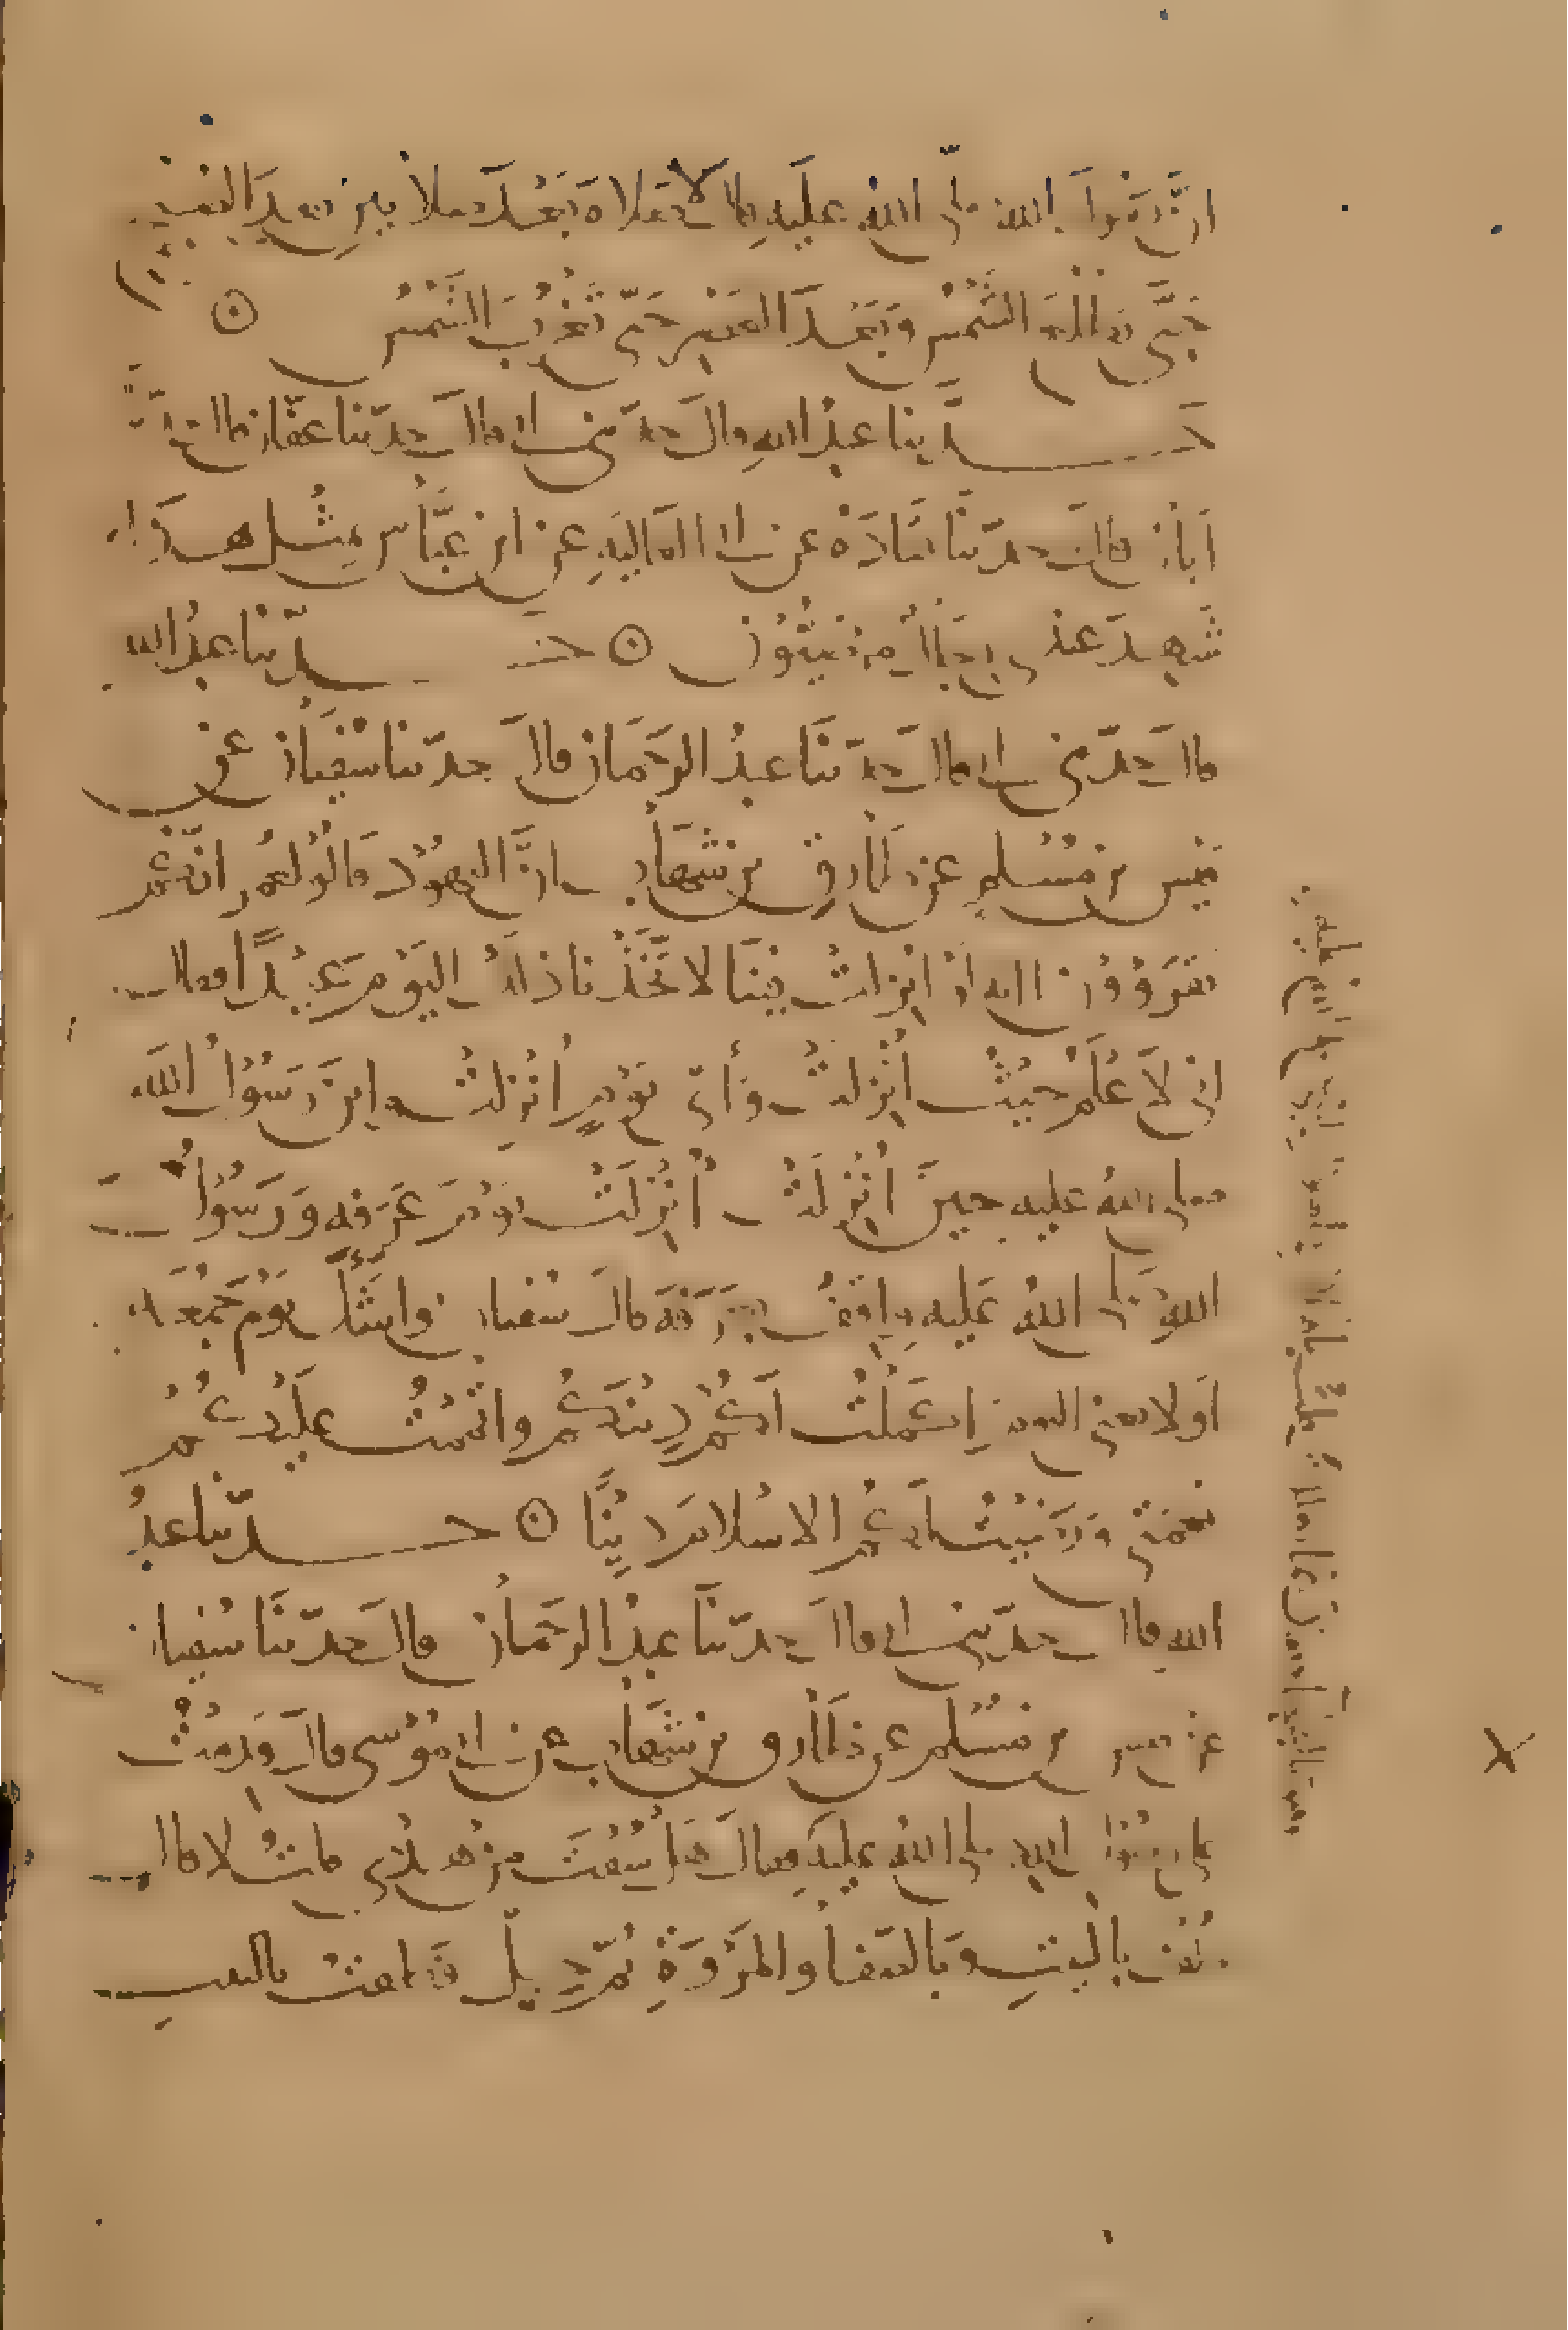 انّ رسُولَ الله صلى اللهُ عليَهِ قال لا صَلاةَ بَعْدَ صلاتينِ بعدَ الصبح
حَتَّى تطلُعَ الشَّمْسُ وَبَعْدَ العَصْرِ حَتّى تَغْرُبَ الشَّمْسُ ⊙
حــدَّثنا عبدُ اللهِ قال حدّثني ابى قالَ حدّثنا عفّان قال
اَبان قالَ حدّثنا قتَادَةُ عن ابى العَاليَهِ عن ابن عبَّاس بمثْل هذا
شَهِدَ عندى رجَالٌ مرْضيُّوْن ⊙ حــدّثنا عبدُ الله
قالَ حدّثنى ابى قالَ حدّثنَا عبدُ الرحْمَان قالَ حدّثنا سُفْيَان عن
قيْس بن مُسْلمٍ عن طَارقِ بن شهَابٍ انَّ اليَهُوْد قالُوْا لعُمر انّكُمْ
تقرَؤُوْن ايه لوْ انْزلتْ فينَا لاتَّخذْنا ذلكَ اليَوْمَ عيْدًا فقال
انى لاَعْلَمُ حيْثُ اُنْزلَتْ وَأىّ يَوْمٍ اُنْزِلتْ واينَ رَسُوْلُ الله
صلى اللهُ عليه حينَ اُنْزلَتْ اُنْزلَتْ يَوْمَ عَرَفه وَرَسُوْلُ
اللهِ صلى اللهُ عَليه واقفٌ بعَرَفَهَ قالَ سُفْيان واشُكّ يَوْمَ جُمُعَه
اَولا يعنى اليوم اكْمَلْتُ لَكُمْ ديْنَكُم واتْمَمْتُ عليْكُمْ
نعْمَتى وَرَضيْتُ لَكُم الاسْلامَ ديْنًا ⊙ حــدّثنا عبدُ
الله قالَ حدّثنى ابى قالَ حدّثنَا عبدُ الرحْمَان قالَ حدّثنَا سُفيان
عن قيس بن مُسْلم عن طَارق بن شهَاب عن ابى مُوْسى قالَ قَدمْتُ
على رسُوْل اللهِ صلى اللهُ عليَهِ فقالَ هَلْ سُقْتَ منْ هَدْىٍ قلتُ لا قال
طُفْ بالبيْتِ وَبالصَفا والمَرْوَةِ ثمّ حِلّ فَطفتُ بالبيتِ